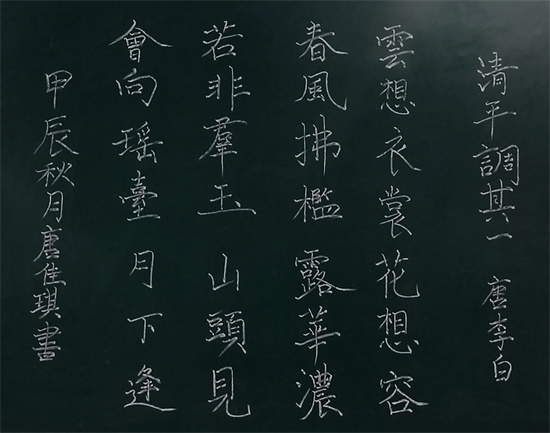 清平調其一 唐李白
雲想衣裳花想容
春風拂檻露華濃
若非羣玉山頭見
會向瑶臺月下逢
甲辰秋月唐佳琪書